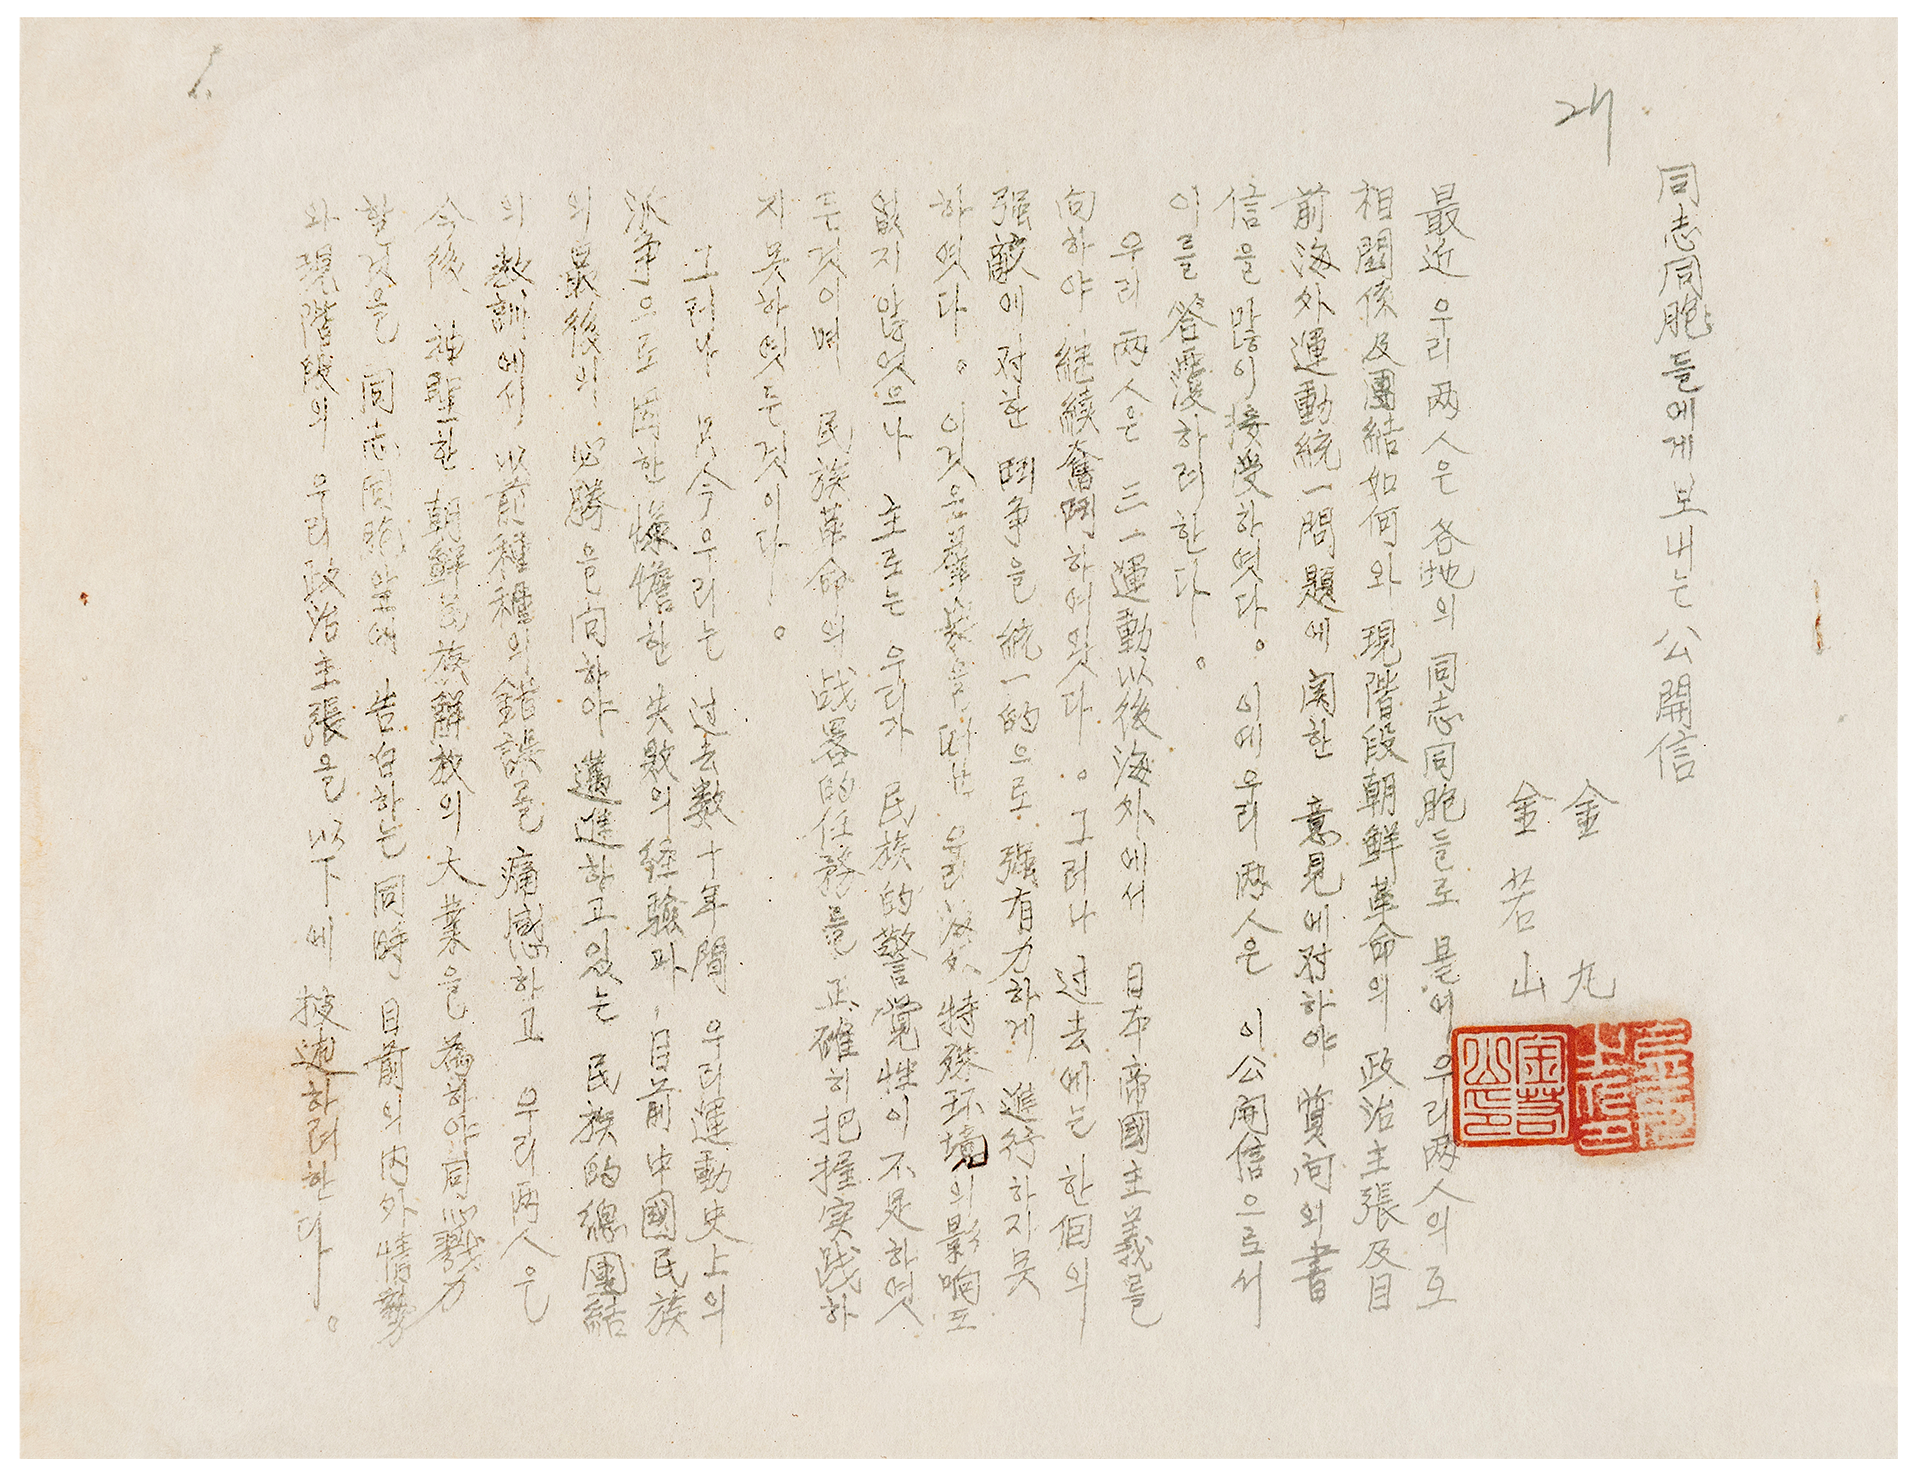 同志同胞들에게보내는 公開信
金 九
金若山
最近 우리兩人은 各地의 同志同胞들로 붙어 우리兩人의 互
相關係及團結如何와 現階段朝鮮革命의 政治主張及目
前海外運動統一問題에 関한 意見에対하야 質问의書
信을 많이接受하엿다。이에우리兩人은 이公開信으로서
이를 答覆하려한다。
우리 兩人은 三一運動以後海外에서 日本帝國主義를
向하야 継續奮鬪하여왓다。그러나 过去에는 한個의
强敵에対한 鬪争을統一的으로 强有力하게 進行하지못
하엿다。이것은 우리海外 特殊环境의影响도
없지않엇으나 主로는 우리가 民族的警覚性이不足하엿
든것이며 民族革命의战畧的任務를 正確히把握实践하
지못하엿든것이다。
그러나 只今우리는 过去数十年間 우리運動史上의
派争으로因한惨憺한 失敗의経驗과,目前中國民族
의最後의 必勝을向하야 邁進하고있는 民族的總團結
의教訓에서 以前種種의錯誤를 痛感하고 우리兩人은
今後 神聖한朝鮮民族解放의大業을為하야同心戮力
할것을 同志同胞앞에 告白하는同時 目前의内外情勢
와現階段의 우리政治主張을以下에 披述하려한다。